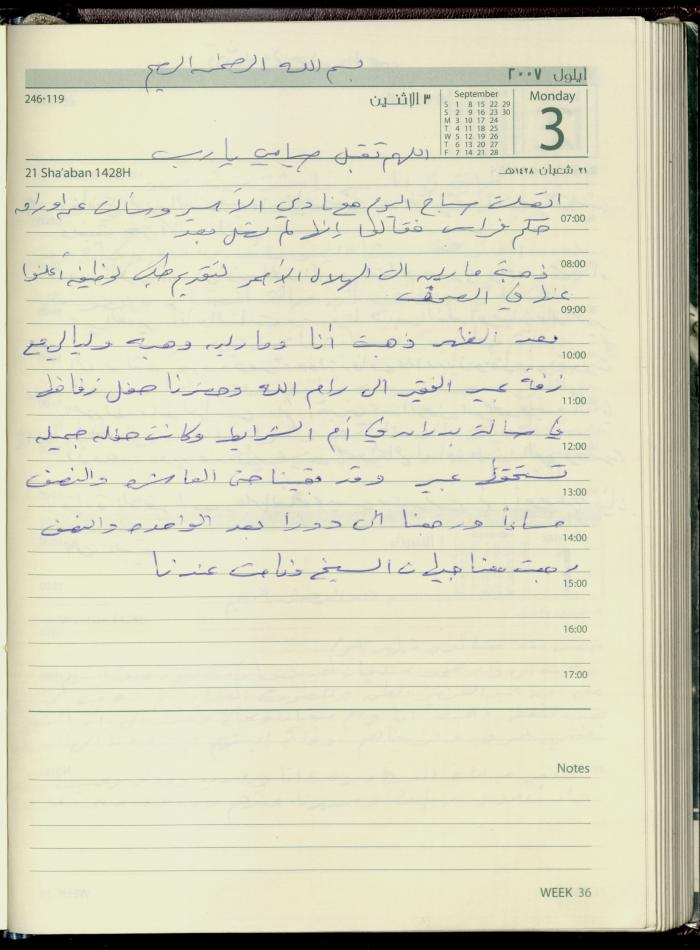 بسم الله الرحمن الرحيم
ايلول ٢٠٠٧
246-119
٣ الاثنين
September
S 1 8 15 22 29
S 2 9 16 23 30
M 3 10 17 24
T 4 11 18 25
W 5 12 19 26
T 6 13 20 27
F 7 14 21 28
Monday
3
اللهم تقبل صيامي يا رب
21 Sha'aban 1428H
٢١ شعبان ١٤٢٨هـ
اتصلت صباح اليوم مع نادي الأسير وسألت عن اوراق
07:00
حكم فراس فقالوا إلا لم تصل بعد
08:00
ذهبت ماريه الى الهلال الأحمر لتقديم طلب لوظيفه أعلنوا
عنها في الصحف
09:00
بعد الظهر ذهبت أنا وماريه وهبه وليالي مع
10:00
زفة عبير الفقير الى رام الله وحضرنا حفل زفافها
11:00
في صالة في أم الشرايط وكانت حفله جميله
12:00
تستحقها عبير وقد بقينا حتى العاشره والنصف
13:00
مساءاً ورجعنا الى دورا بعد الواحده والنصف
14:00
رجعت معنا جيهان الشيخ ونامت عندنا
15:00
16:00
17:00
Notes
WEEK 36